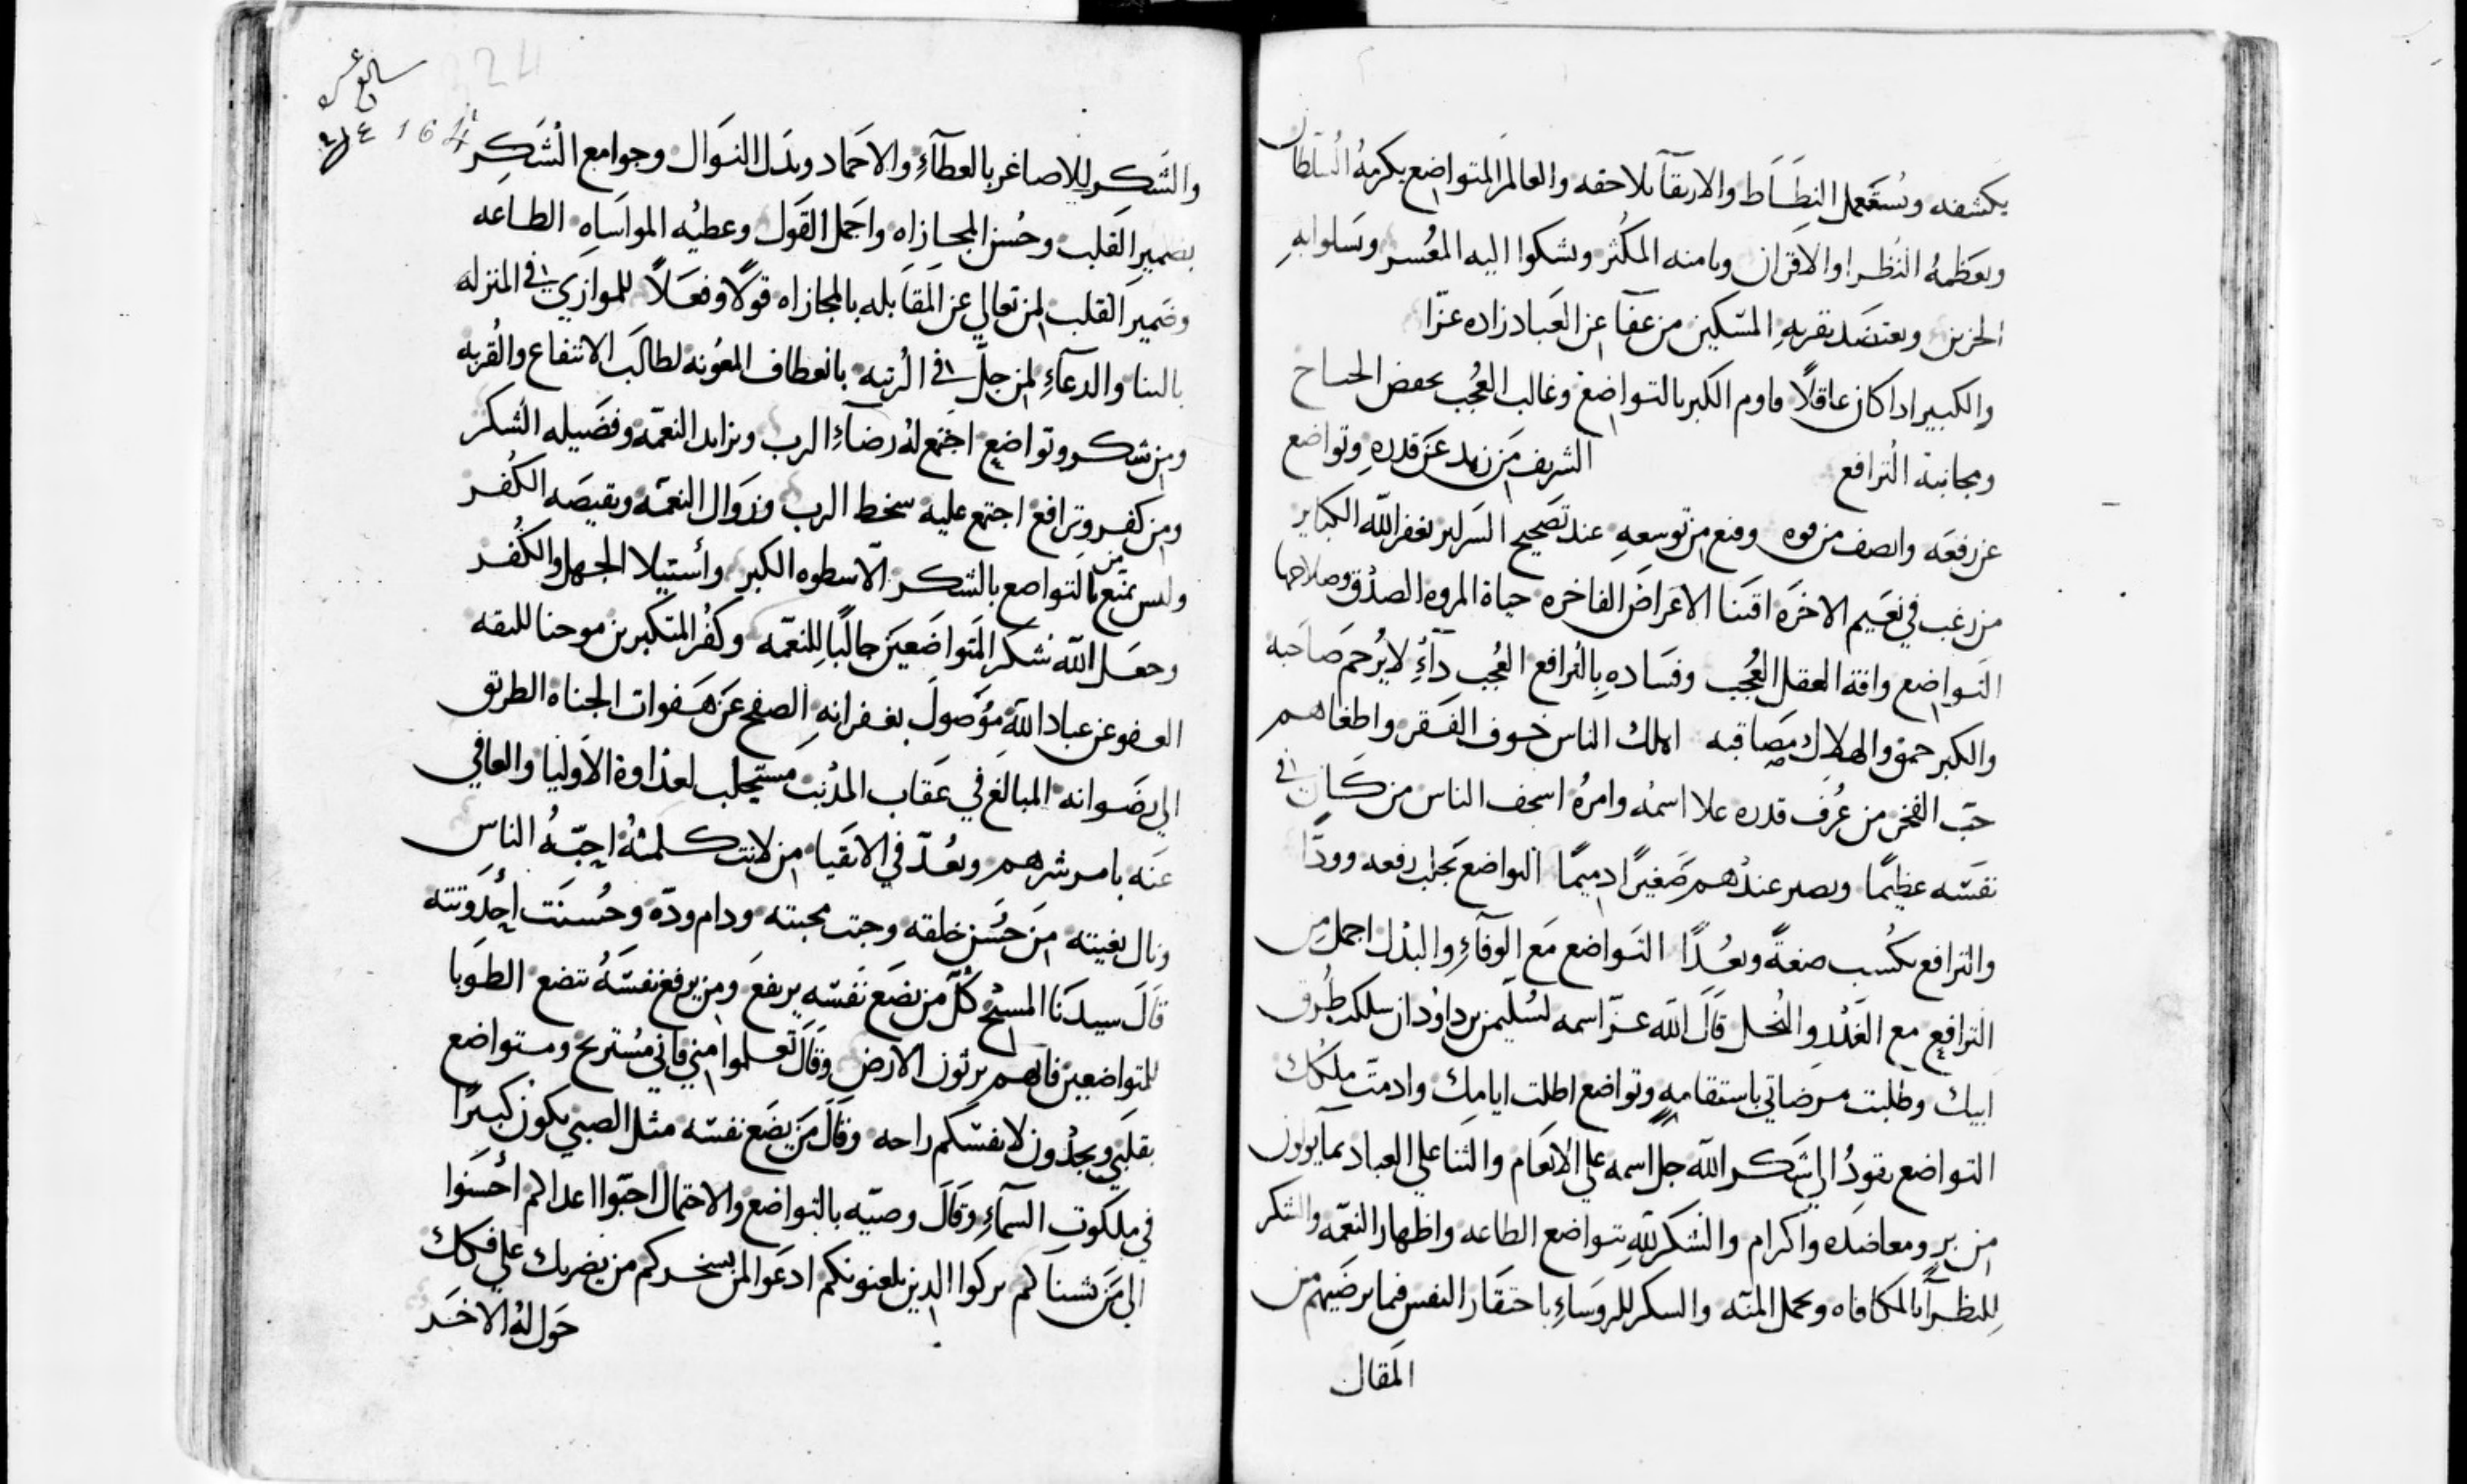 يكشفه ويستعمل النطساط والارتقآ بلاحقه والعالم المتواضع يكرمهُ السلطان
ويعظمهُ النظرا والاقران ويامنه المكثر ويشكوا اليه المعسر ويسلوا به
الحزين ويعتضد بقربهِ المسكين من عفا عن العباد زاده عزّا
والكبير اذا كان عاقلاً قاوم الكبر بالتواضع وغالب العجب بخفض الجناح
ومجانبة الترافع الشريف من زهد عن قدرهِ وتواضع
عن رفعه وانصف من قوه ومنع من توسعهِ عند تصحيح السراير يغفر الله الكباير
من رغب في نعيم الاخره اقتنا الاعراض الفاخره حياة المروه الصدق وصلاحها
التواضع وافة العقل العُجب وفساده بالترافع العُجب دآءٌ لا يُرحم صاحبه
والكبر حمق والهلاك يصاقبه اهلك الناس خوف الفقر واطغاهم
حبّ الفخر من عُرف قدره علا اسمهُ وامرهُ اسخف الناس من كان في
نفسه عظيمًا ويصير عندهم صغيرًا دميمًا التواضع يجلب رفعه وودًّا
والترافع يكسب ضعةً وبعُدًا التواضع مع الوفآءِ والبذل اجمل من
الترافع مع الغدر والبخل قال الله عزّ اسمه لسليمن بن داوُد ان سلكت طُرق
ابيك وطلبت مرضاتي باستقامهٍ وتواضع اطلت ايامك وادمت ملكك
التواضع يقودُ الي شكر الله جل اسمه علي الانعام والثنا علي العباد بما يولون
من برٍ ومعاضده واكرام والشكر للهِ بتواضع الطاعه واظهار النعمه والشكر
للنظرآ بالمكافاه وتحمل المنه والسكر للروساءِ باحتقار النفس فيما يرضيهم من
المقال
سابع عشر
164
224
والشكر للاصاغر بالعطآءِ والاحماد وبذل النوال وجوامع الشكر
بضمير القلب وحُسن المجازاه واجمل القول وعطيه المواساه الطاعه
وضمير القلب لمن تعالي عن المقابله بالمجازاه قولاً وفعلاً للموازي في المنزله
بالثنا والدعآءِ لمن جلّ في الرتبه بانعطاف المعونه لطالب الانتفاع والقربه
ومن شكر وتواضع اجتمع لهُ رضآء الرب وتزايد النعمه وفضيله الشكر
ومن كفر وترافع اجتمع عليه سخط الرب وزوال النعمه ونقيصه الكُفر
وليس يمنع من التواضع بالشكر الّا سطوه الكبر وأستيلا الجهل والكُفر
وجعل الله شكر المتواضعين جالبًا للنعمه وكفُر المتكبرين موجبا للنقمه
العفو عن عباد الله موُصول بغفرانهِ الصفح عن هفوات الجناه الطريق
الي رضوانه المبالغ في عقاب المذنب مستجلب لعداوة الاوليا والعافي
عنه يامن شرهم ويعُدّ في الاتقيا من لانت كلمتهُ احبّهُ الناس
ونال بغيته من حسُن خلقه وجبت محبته ودام ودّه وحُسنت أحدوثته
قال سيدنا المسيح كلّ من يضع نفسه يرتفع ومن يرفع نفسهُ يتضع الطوبا
للمتواضعين فانهم يرثون الارض وقال تعلموا مني فاني مُستريح ومتواضع
بقلبي ويجدون لانفسكم راحه وقال من يضع نفسه مثل الصبي يكون كبيرًا
في ملكوت السمآءِ وقال وصيّه بالتواضع والاحتمال احبّوا اعداكم أحسنوا
الي من شناكم بركوا الذين يلعنونكم ادعوا لمن يسخركم من يضربك علي فكك
حَول لهُ الاخَر